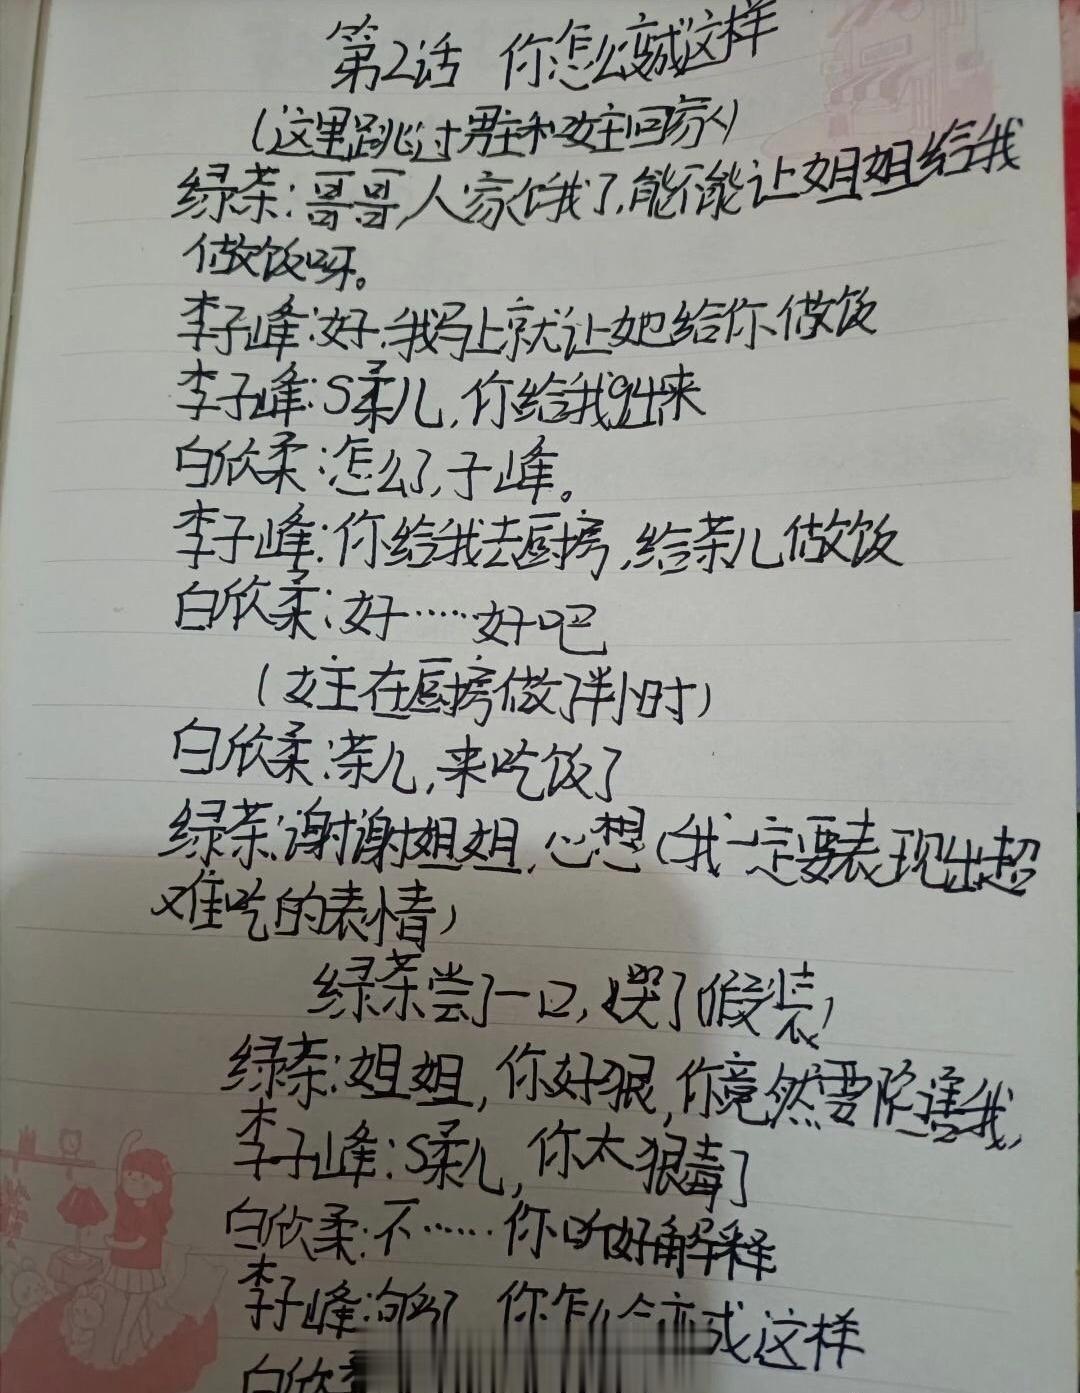 第2话 你怎么变成这样
(这里跳过男主和女主回家)
绿茶:哥哥,人家饿了,能不能让姐姐给我
做饭呀。
李子峰:好,我马上就让她给你做饭
李子峰:S柔儿,你给我出来
白欣柔:怎么了,子峰。
李子峰:你给我去厨房,给茶儿做饭
白欣柔:好……好吧
(女主在厨房做了半小时)
白欣柔:茶儿,来吃饭了
绿茶:谢谢姐姐,心想(我一定要表现出超
难吃的表情)
绿茶尝了一口,哭了(假装)
绿茶:姐姐,你好狠,你竟然要陷害我,
李子峰:S柔儿,你太狠毒了
白欣柔:不……你听好解释
李子峰:够了 你怎么会变成这样
白欣柔